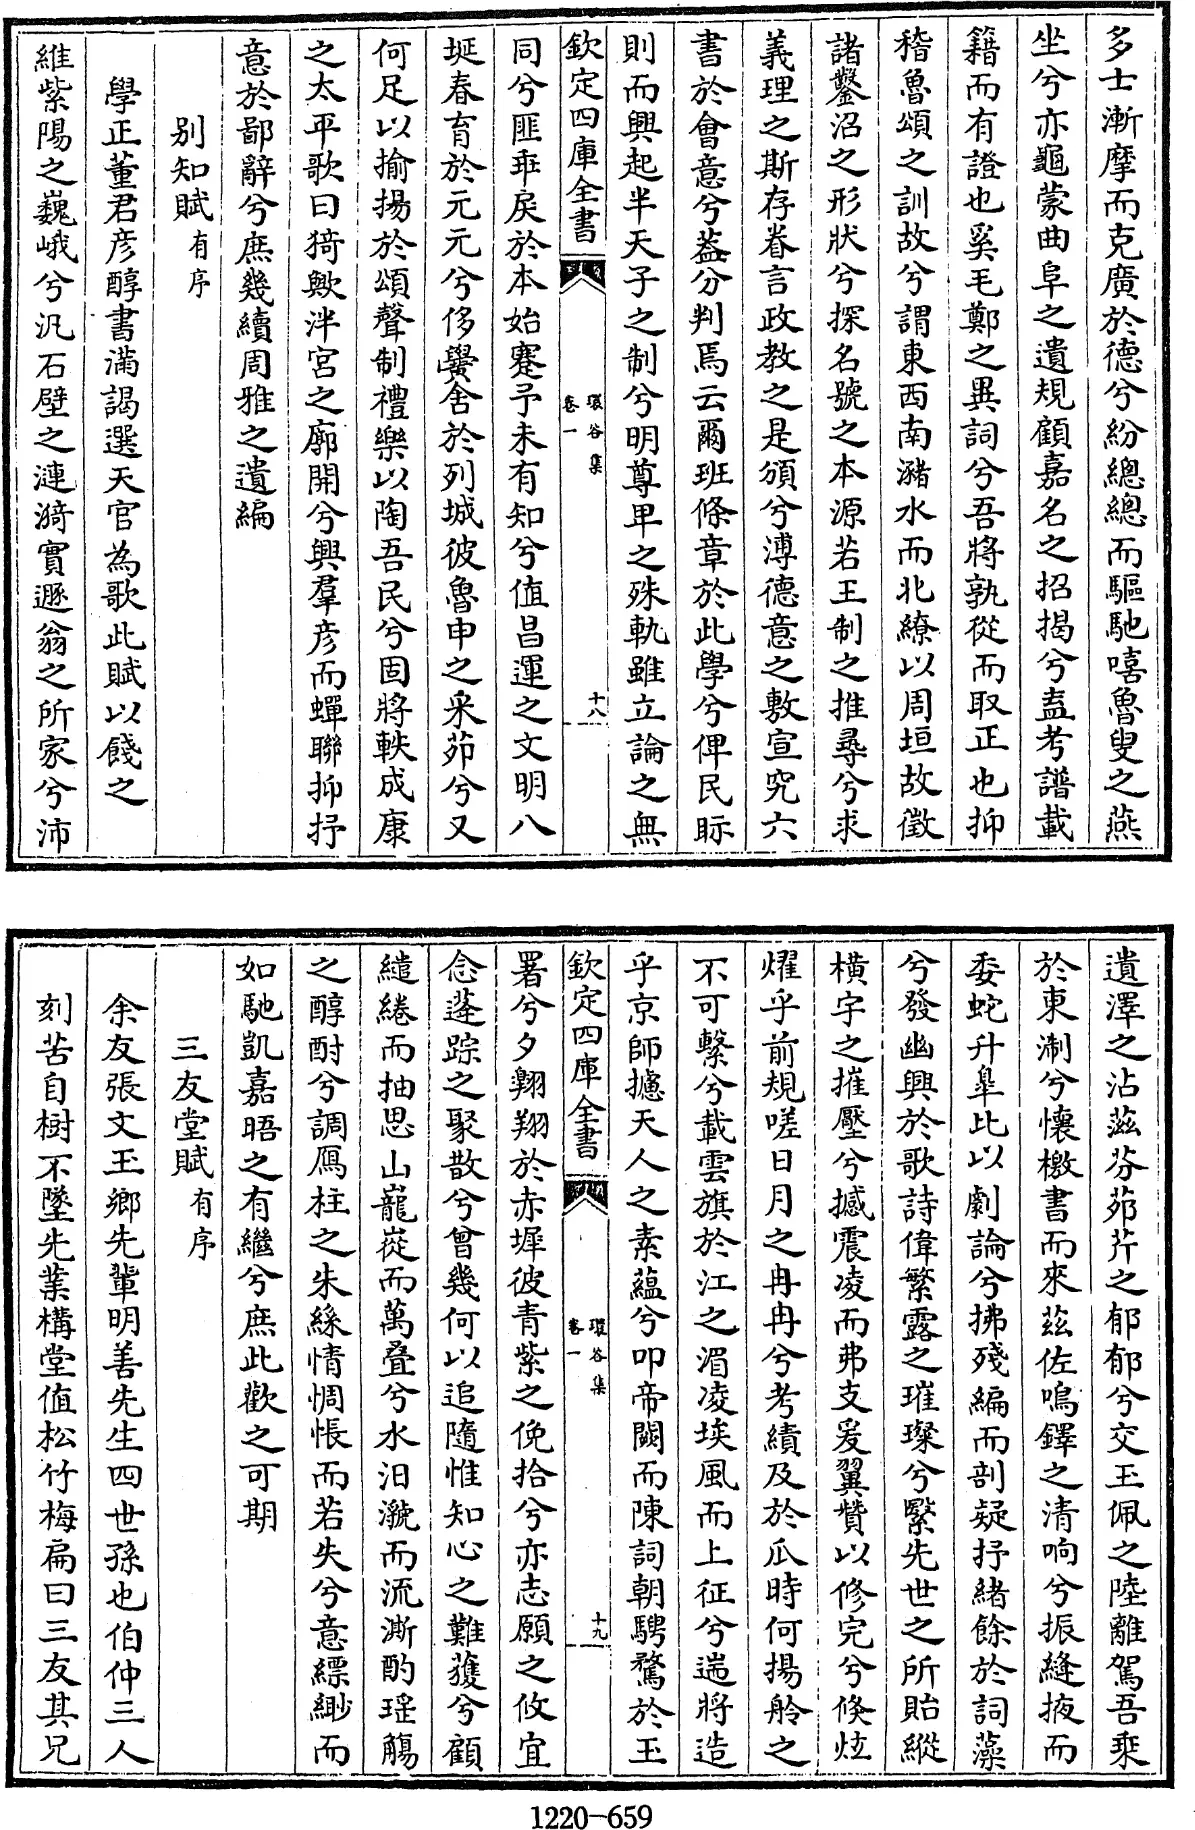 多士漸摩而克廣於德兮紛總總而驅馳嘻魯叟之燕
坐兮亦龜蒙曲阜之遺規顧嘉名之招揭兮盍考譜載
籍而有證也奚毛鄭之異詞兮吾將孰從而取正也抑
稽魯頌之訓故兮謂東西南瀦水而北繚以周垣故徵
諸鑿沼之形狀兮探名號之本源若王制之推尋兮求
義理之斯存眷言政教之是頒兮溥德意之敷宣究六
書於會意兮葢分判焉云爾班條章於此學兮俾民眎
則而興起半天子之制兮明尊卑之殊軌雖立論之無
欽定四庫全書
環谷集
卷一
十八
同兮匪乖戾於本始蹇予未有知兮值昌運之文明八
埏春育於元元兮侈黌舍於列城彼魯申之采茆兮又
何足以揄揚於頌聲制禮樂以陶吾民兮固將軼成康
之太平歌曰猗歟泮宮之廓開兮興羣彦而蟬聯抑抒
意於鄙辭兮庶幾續周雅之遺編
别知賦有序
學正董君彦醇書滿謁選天官為歌此賦以餞之
維紫陽之巍峨兮汎石壁之漣漪實遯翁之所家兮沛
遺澤之沾濨芬茆芹之郁郁兮交玉佩之陸離駕吾乘
於東淛兮懷檄書而來茲佐鳴鐸之清响兮振縫掖而
委蛇升臯比以劇論兮拂殘編而剖疑抒緒餘於詞藻
兮發幽興於歌詩偉繁露之璀璨兮繄先世之所貽縱
橫宇之摧壓兮撼震凌而弗支爰翼贊以修完兮倐炫
燿乎前規嗟日月之冉冉兮考績及於瓜時何揚舲之
不可繫兮載雲旗於江之湄凌埃風而上征兮遄將造
乎京師攄天人之素蘊兮叩帝閽而陳詞朝騁騖於玉
欽定四庫全書
環谷集
卷一
十九
署兮夕翺翔於赤墀彼青紫之俛拾兮亦志願之攸宜
念蓬踪之聚散兮曾幾何以追隨惟知心之難獲兮顧
繾綣而抽思山巃嵸而萬叠兮水汨㶁而流澌酌瑶觴
之醇酎兮調鴈柱之朱絲情惆悵而若失兮意縹緲而
如馳凱嘉晤之有繼兮庶此歡之可期
三友堂賦有序
余友張文玉鄉先輩明善先生四世孫也伯仲三人
刻苦自樹不墜先業構堂值松竹梅扁曰三友其兄
1220-659